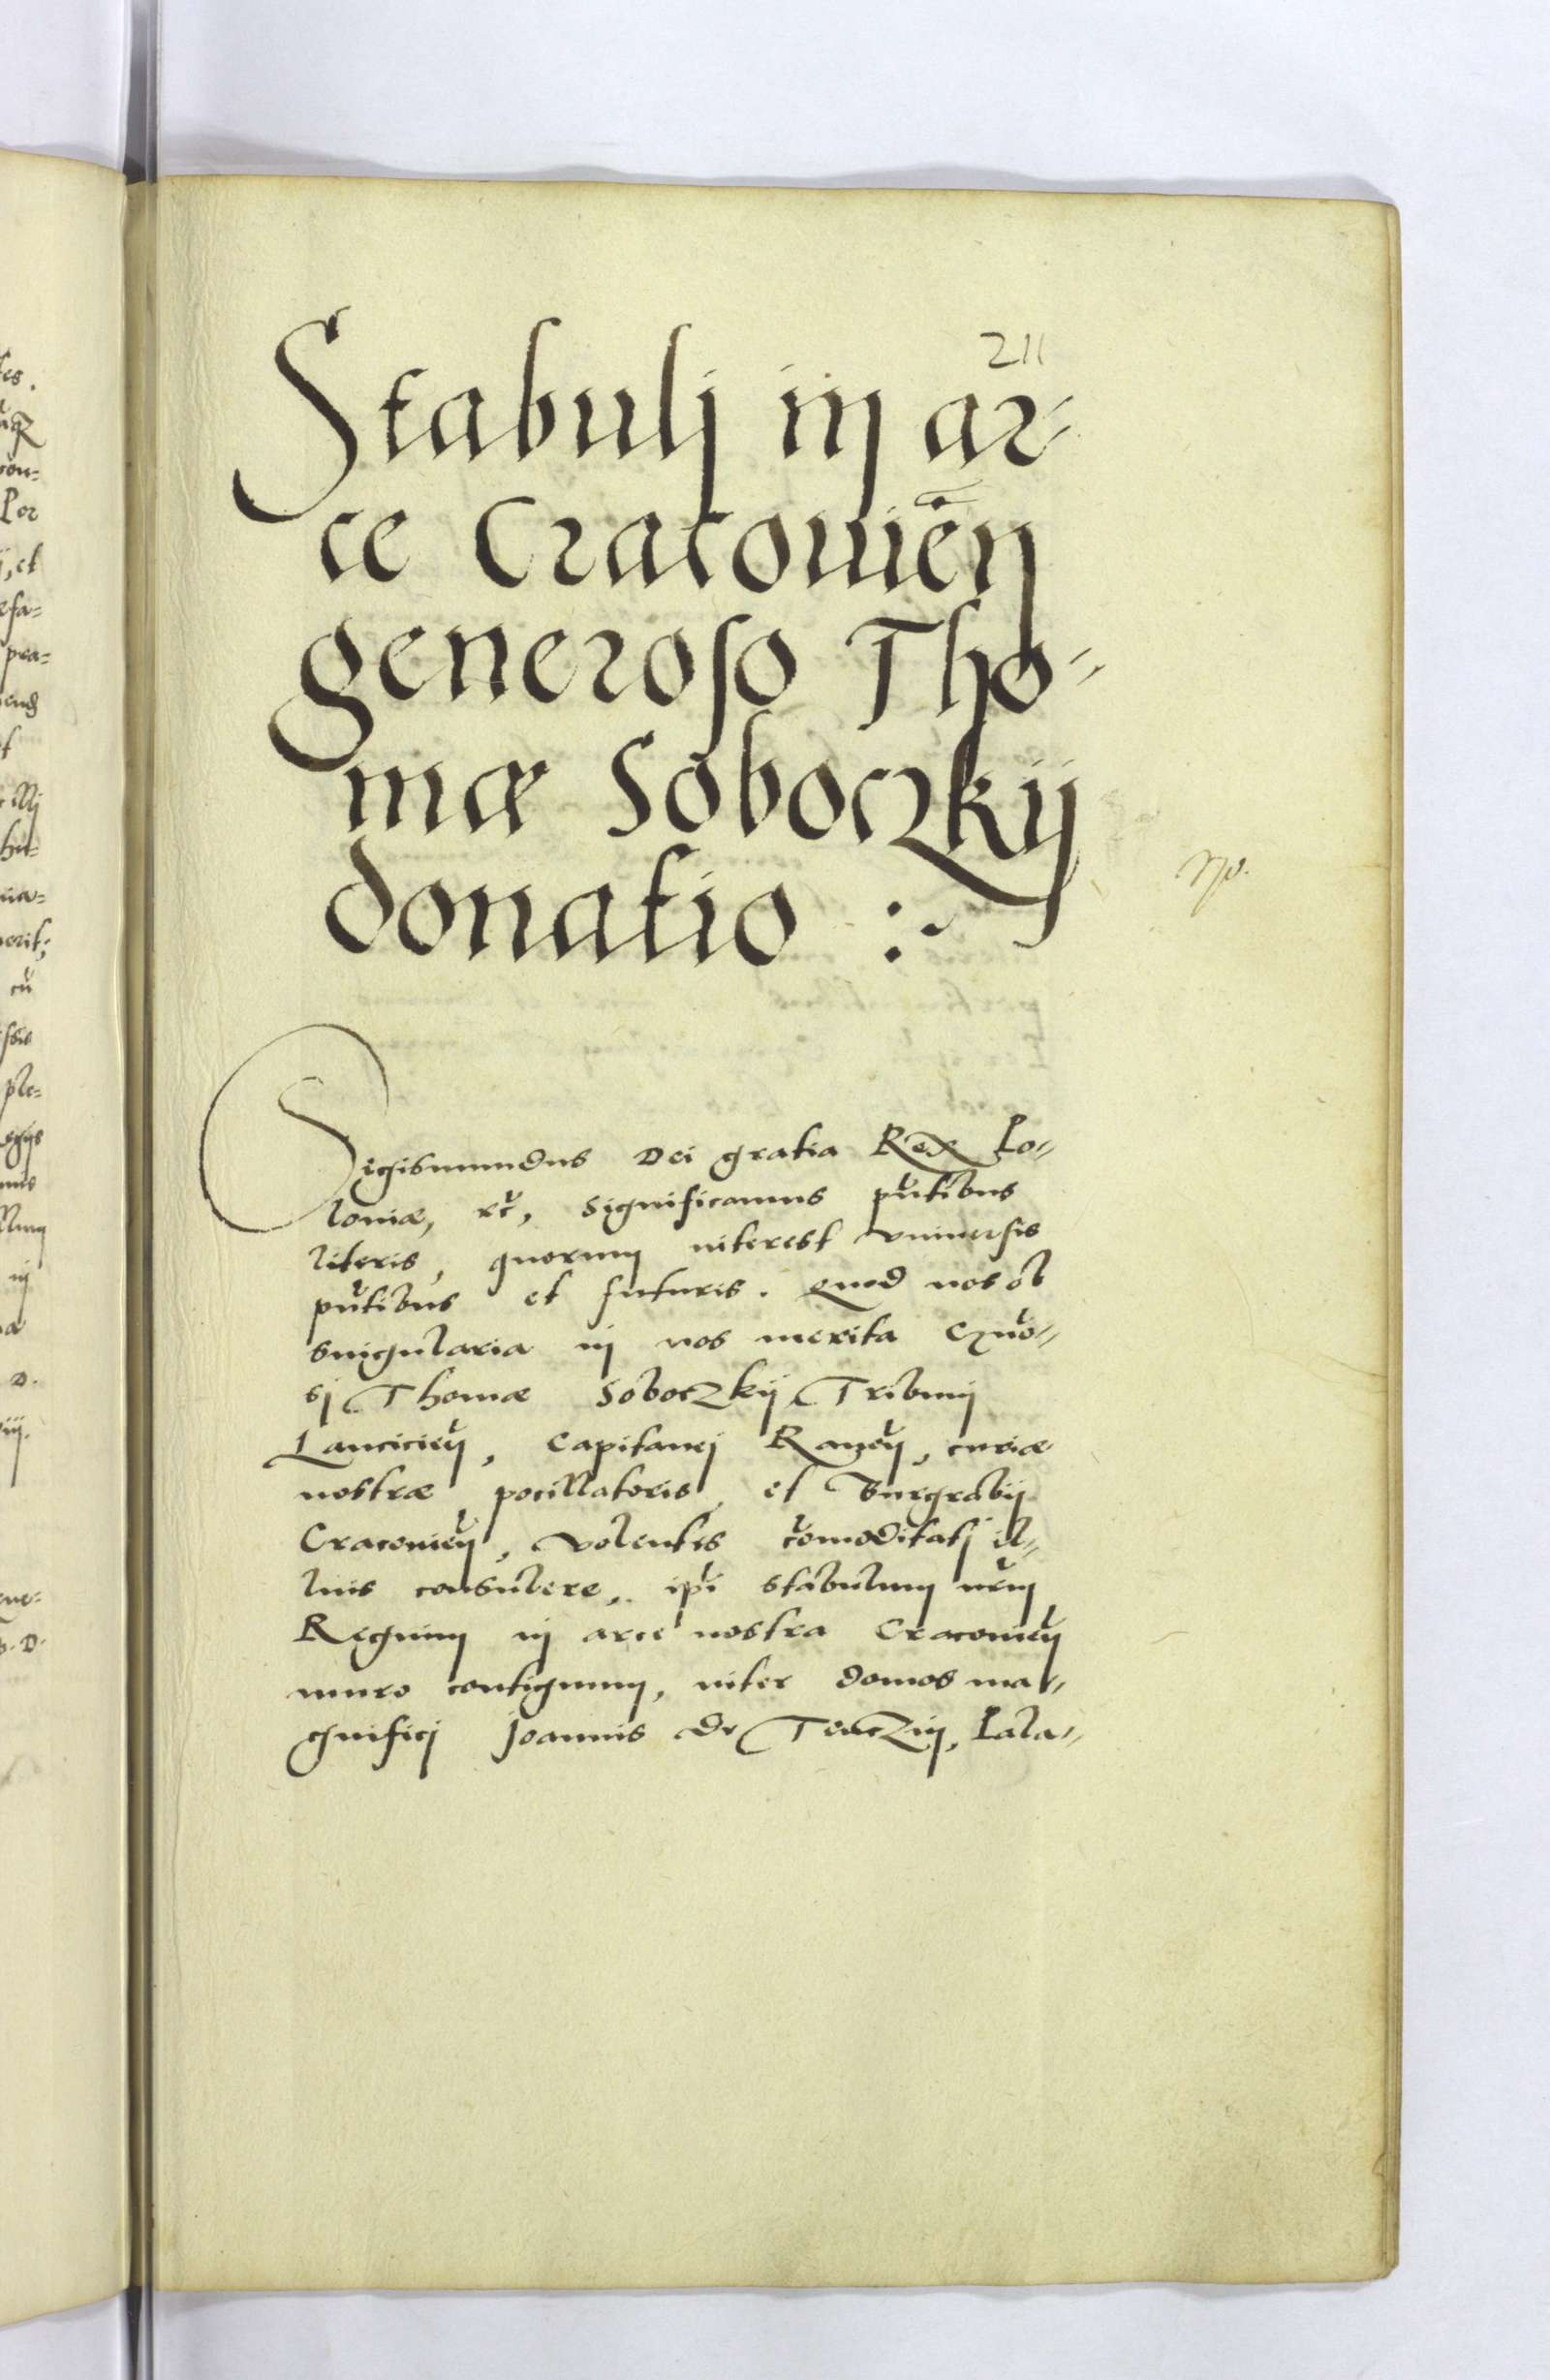 211
Stabulj in ar-
ce Cracovień
generoso Tho-
mæ Soboczkij
donatio :~
No.
Sigismundus Dei gratia Rex Po-
loniæ, etc̃, significamus pn̄tibus
literis, quorum interest vniuersis
pn̄tibus et futuris. Quod nos ob
singularia in nos merita Gn̄o-
sj Thomæ Soboczkij Tribuni
Lancicień, Capitanei Raweń, curiæ
nostræ pocillatoris, et Burgrabij
Cracovień, volentes com̃oditatj il-
lius consulere, ip̃i stabulum nr̃um
Regium in arce nostra Cracovień
muro contiguum, inter domos ma-
gnificj Joannis de Tenczin, Pala-